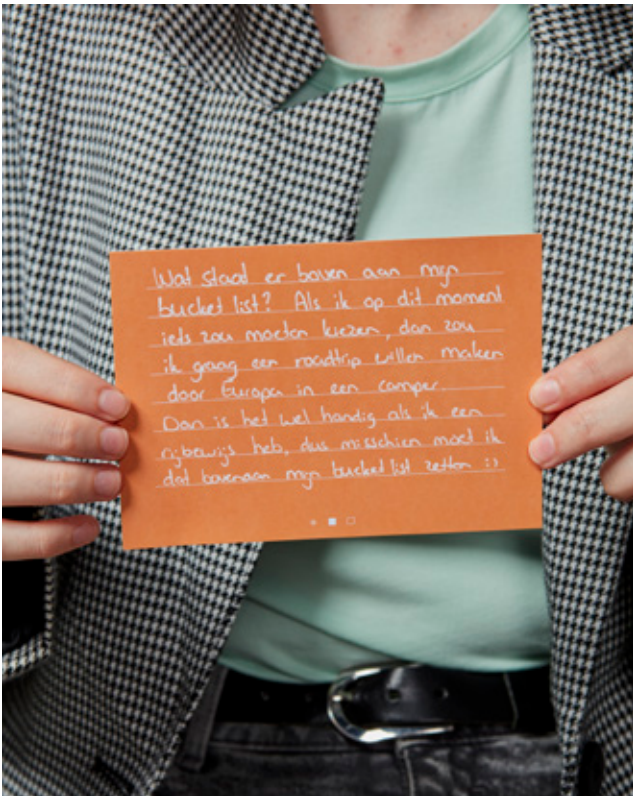 Wat staat er boven aan mijn
bucket list? Als ik op dit moment
iets zou moeten kiezen, dan zou
ik graag een roadtrip willen maken
door Europa in een camper.
Dan is het wel handig als ik een
rijbewijs heb, dus misschien moet ik
dat bovenaan mijn bucket list zetten :)